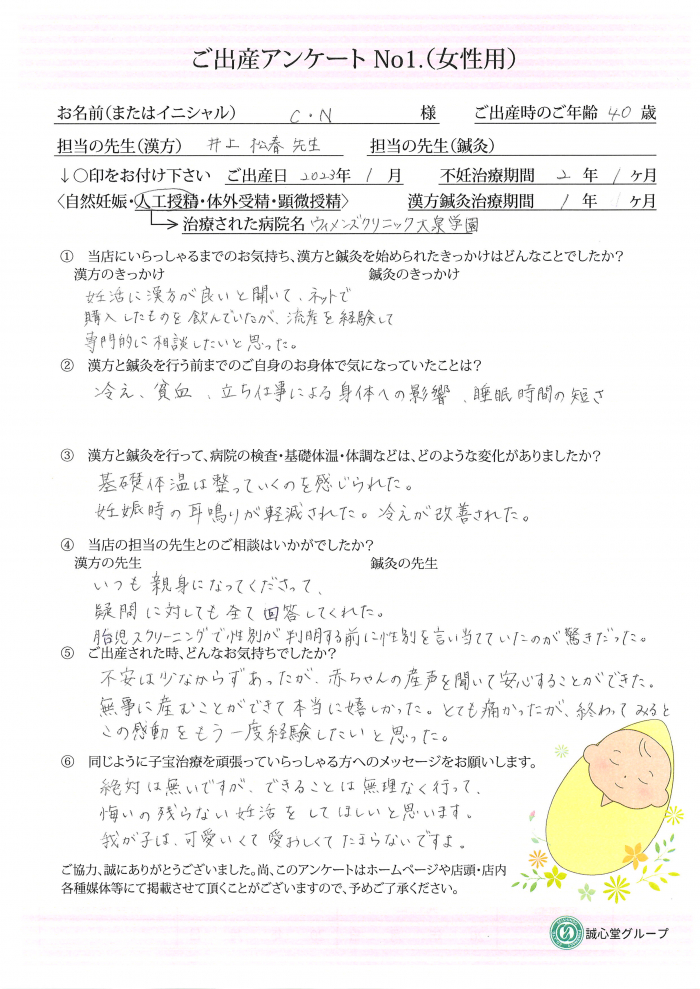 ご出産アンケート No1.(女性用)
お名前(またはイニシャル) C・N 様 ご出産時のご年齢 40 歳
担当の先生(漢方) 井上 松春 先生 担当の先生(鍼灸)
↓〇印をお付け下さい ご出産日 2023年 1 月 不妊治療期間 2 年 1 ヶ月
〈自然妊娠・人工授精・体外受精・顕微授精〉 漢方鍼灸治療期間 1 年 1 ヶ月
治療された病院名 ウィメンズクリニック大泉学園
① 当店にいらっしゃるまでのお気持ち、漢方と鍼灸を始められたきっかけはどんなことでしたか?
漢方のきっかけ 鍼灸のきっかけ
妊活に漢方が良いと聞いて、ネットで
購入したものを飲んでいたが、流産を経験して
専門的に相談したいと思った。
② 漢方と鍼灸を行う前までのご自身のお身体で気になっていたことは?
冷え、貧血、立ち仕事による身体への影響、睡眠時間の短さ
③ 漢方と鍼灸を行って、病院の検査・基礎体温・体調などは、どのような変化がありましたか?
基礎体温は整っていくのを感じられた。
妊娠時の耳鳴りが軽減された。冷えが改善された。
④ 当店の担当の先生とのご相談はいかがでしたか?
漢方の先生 鍼灸の先生
いつも親身になってくださって、
疑問に対しても全て回答してくれた。
胎児スクリーニングで性別が判明する前に性別を言い当てていたのが驚きだった。
⑤ ご出産された時、どんなお気持ちでしたか?
不安は少なからずあったが、赤ちゃんの産声を聞いて安心することができた。
無事に産むことができて本当に嬉しかった。とても痛かったが、終わってみると
この感動をもう一度経験したいと思った。
⑥ 同じように子宝治療を頑張っていらっしゃる方へのメッセージをお願いします。
絶対は無いですが、できることは無理なく行って、
悔いの残らない妊活をしてほしいと思います。
我が子は、可愛いくて愛おしくてたまらないですよ。
ご協力、誠にありがとうございました。尚、このアンケートはホームページや店頭・店内
各種媒体等にて掲載させて頂くことがございますので、予めご了承ください。
誠心堂グループ